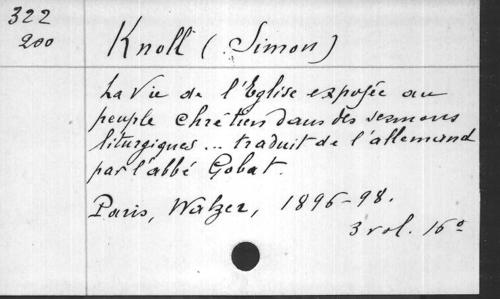 322
200
Knoll (Simon)
La Vie de l'Eglise exposée au
peuple chrétien dans des sermons
liturgiques... traduit de l'allemand
par l'abbé Gobat.
Paris, Walzer, 1896-98.
3 vol. 16º